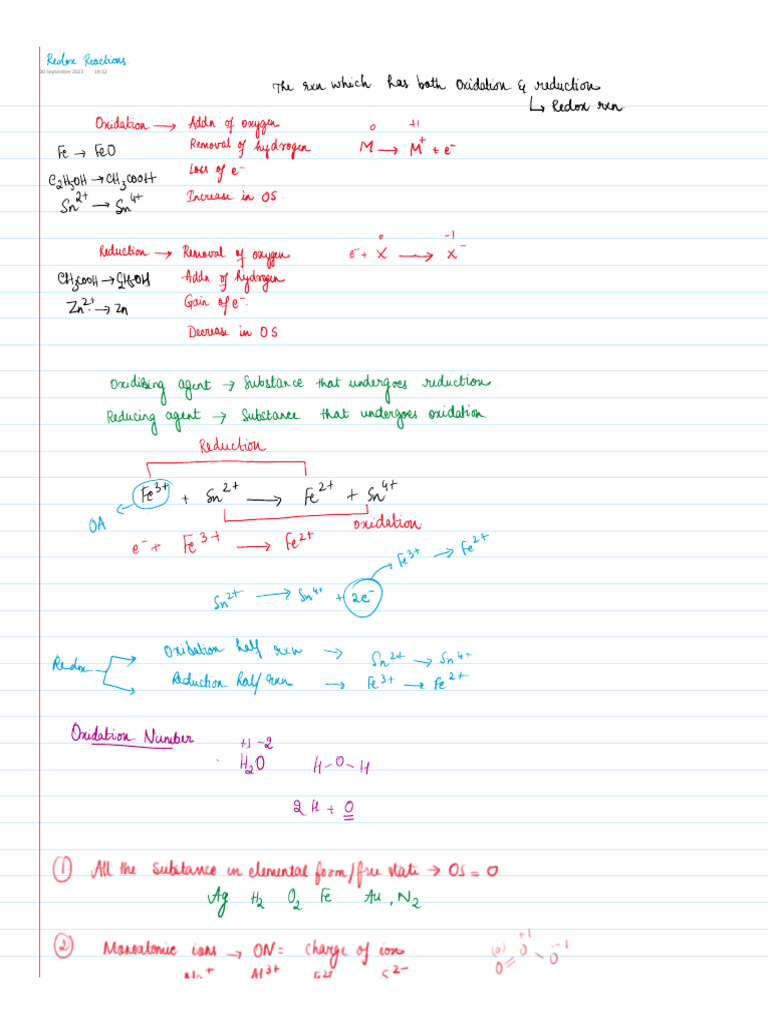 Redox Reactions
30 September 2023 19:12
The rxn which has both Oxidation & reduction
↳ Redox rxn
Oxidation → Addn of oxygen
0 +1
Fe → FeO Removal of hydrogen M → M⁺ + e⁻
C₂H₅OH → CH₃COOH Loss of e⁻
Sn²⁺ → Sn⁴⁺ Increase in OS
0 -1
Reduction → Removal of oxygen e⁻ + X → X⁻
CH₃COOH → C₂H₅OH Addn of hydrogen
Zn²⁺ → Zn Gain of e⁻
Decrease in OS
Oxidising agent → Substance that undergoes reduction
Reducing agent → Substance that undergoes oxidation
Reduction
Fe³⁺ + Sn²⁺ → Fe²⁺ + Sn⁴⁺
OA oxidation
e⁻ + Fe³⁺ → Fe²⁺
Fe³⁺ → Fe²⁺
Sn²⁺ → Sn⁴⁺ + 2e⁻
Oxidation half rxn → Sn²⁺ → Sn⁴⁺
Redox
Reduction half rxn → Fe³⁺ → Fe²⁺
Oxidation Number
+1 -2
H₂O H-O-H
2 H + O
① All the substance in elemental form/free state → OS = 0
Ag H₂ O₂ Fe Au, N₂
② Monoatomic ions → ON = charge of ion
(0) +1 -1
O = O - O
Al³⁺ S²⁻